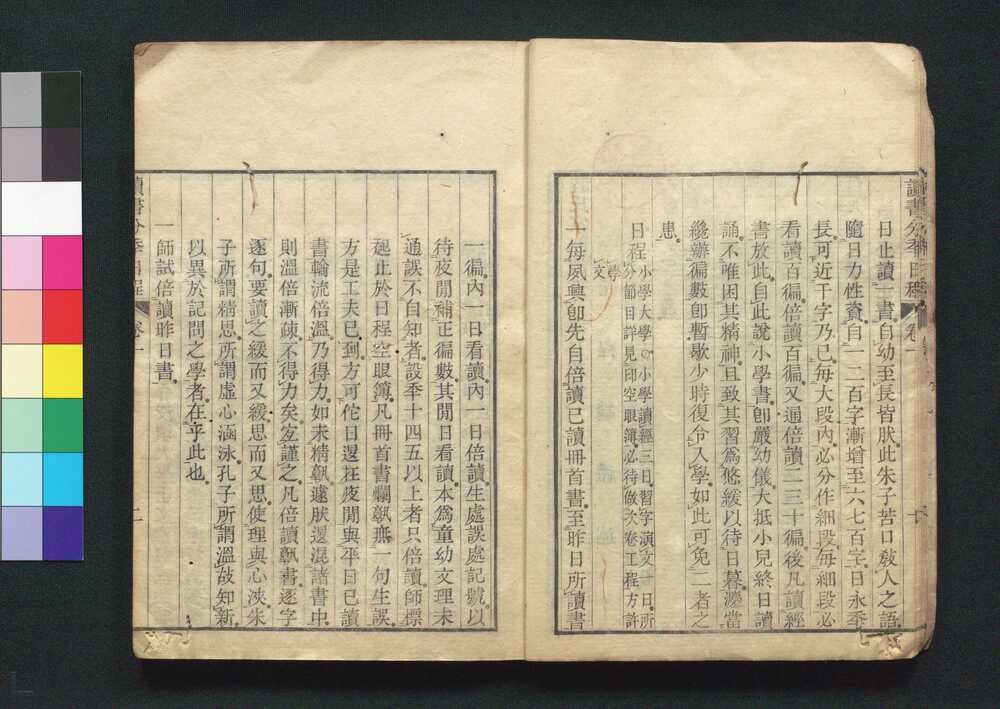 讀書分秊日程 卷一
日止讀一書自幼至長皆肰此朱子苦口敎人之語
隨日力性資自一二百字漸增至六七百字日永秊
長可近千字乃已每大段內必分作細段每細段必
看讀百徧倍讀百徧又通倍讀二三十徧後凡讀經
書放此自此說小學書卽嚴幼儀大抵小兒終日讀
誦不唯困其精神且致其習爲悠緩以待日暮灋當
纔辦徧數卽暫歇少時復令入學如此可免二者之
患
日程
小學大學〇小學讀經三日習字演文一日所
分節目詳見印空眼簿必待做次卷工程方許
學文
一每夙興卽先自倍讀已讀冊首書至昨日所讀書
一徧內一日看讀內一日倍讀生處誤處記號以
待夜閒補正徧數其閒日看讀本爲童幼文理未
通誤不自知者設秊十四五以上者只倍讀師標
起止於日程空眼簿凡冊首書爛孰無一句生誤
方是工夫已到方可佗日退在夜閒與平日已讀
書輪流倍溫乃得力如未精孰遽肰退混諸書中
則溫倍漸疎不得力矣宜謹之凡倍讀孰書逐字
逐句要讀之緩而又緩思而又思使理與心浹朱
子所謂精思所謂虛心涵泳孔子所謂溫故知新
以異於記問之學者在乎此也
一師試倍讀昨日書
讀書分秊日程 卷一